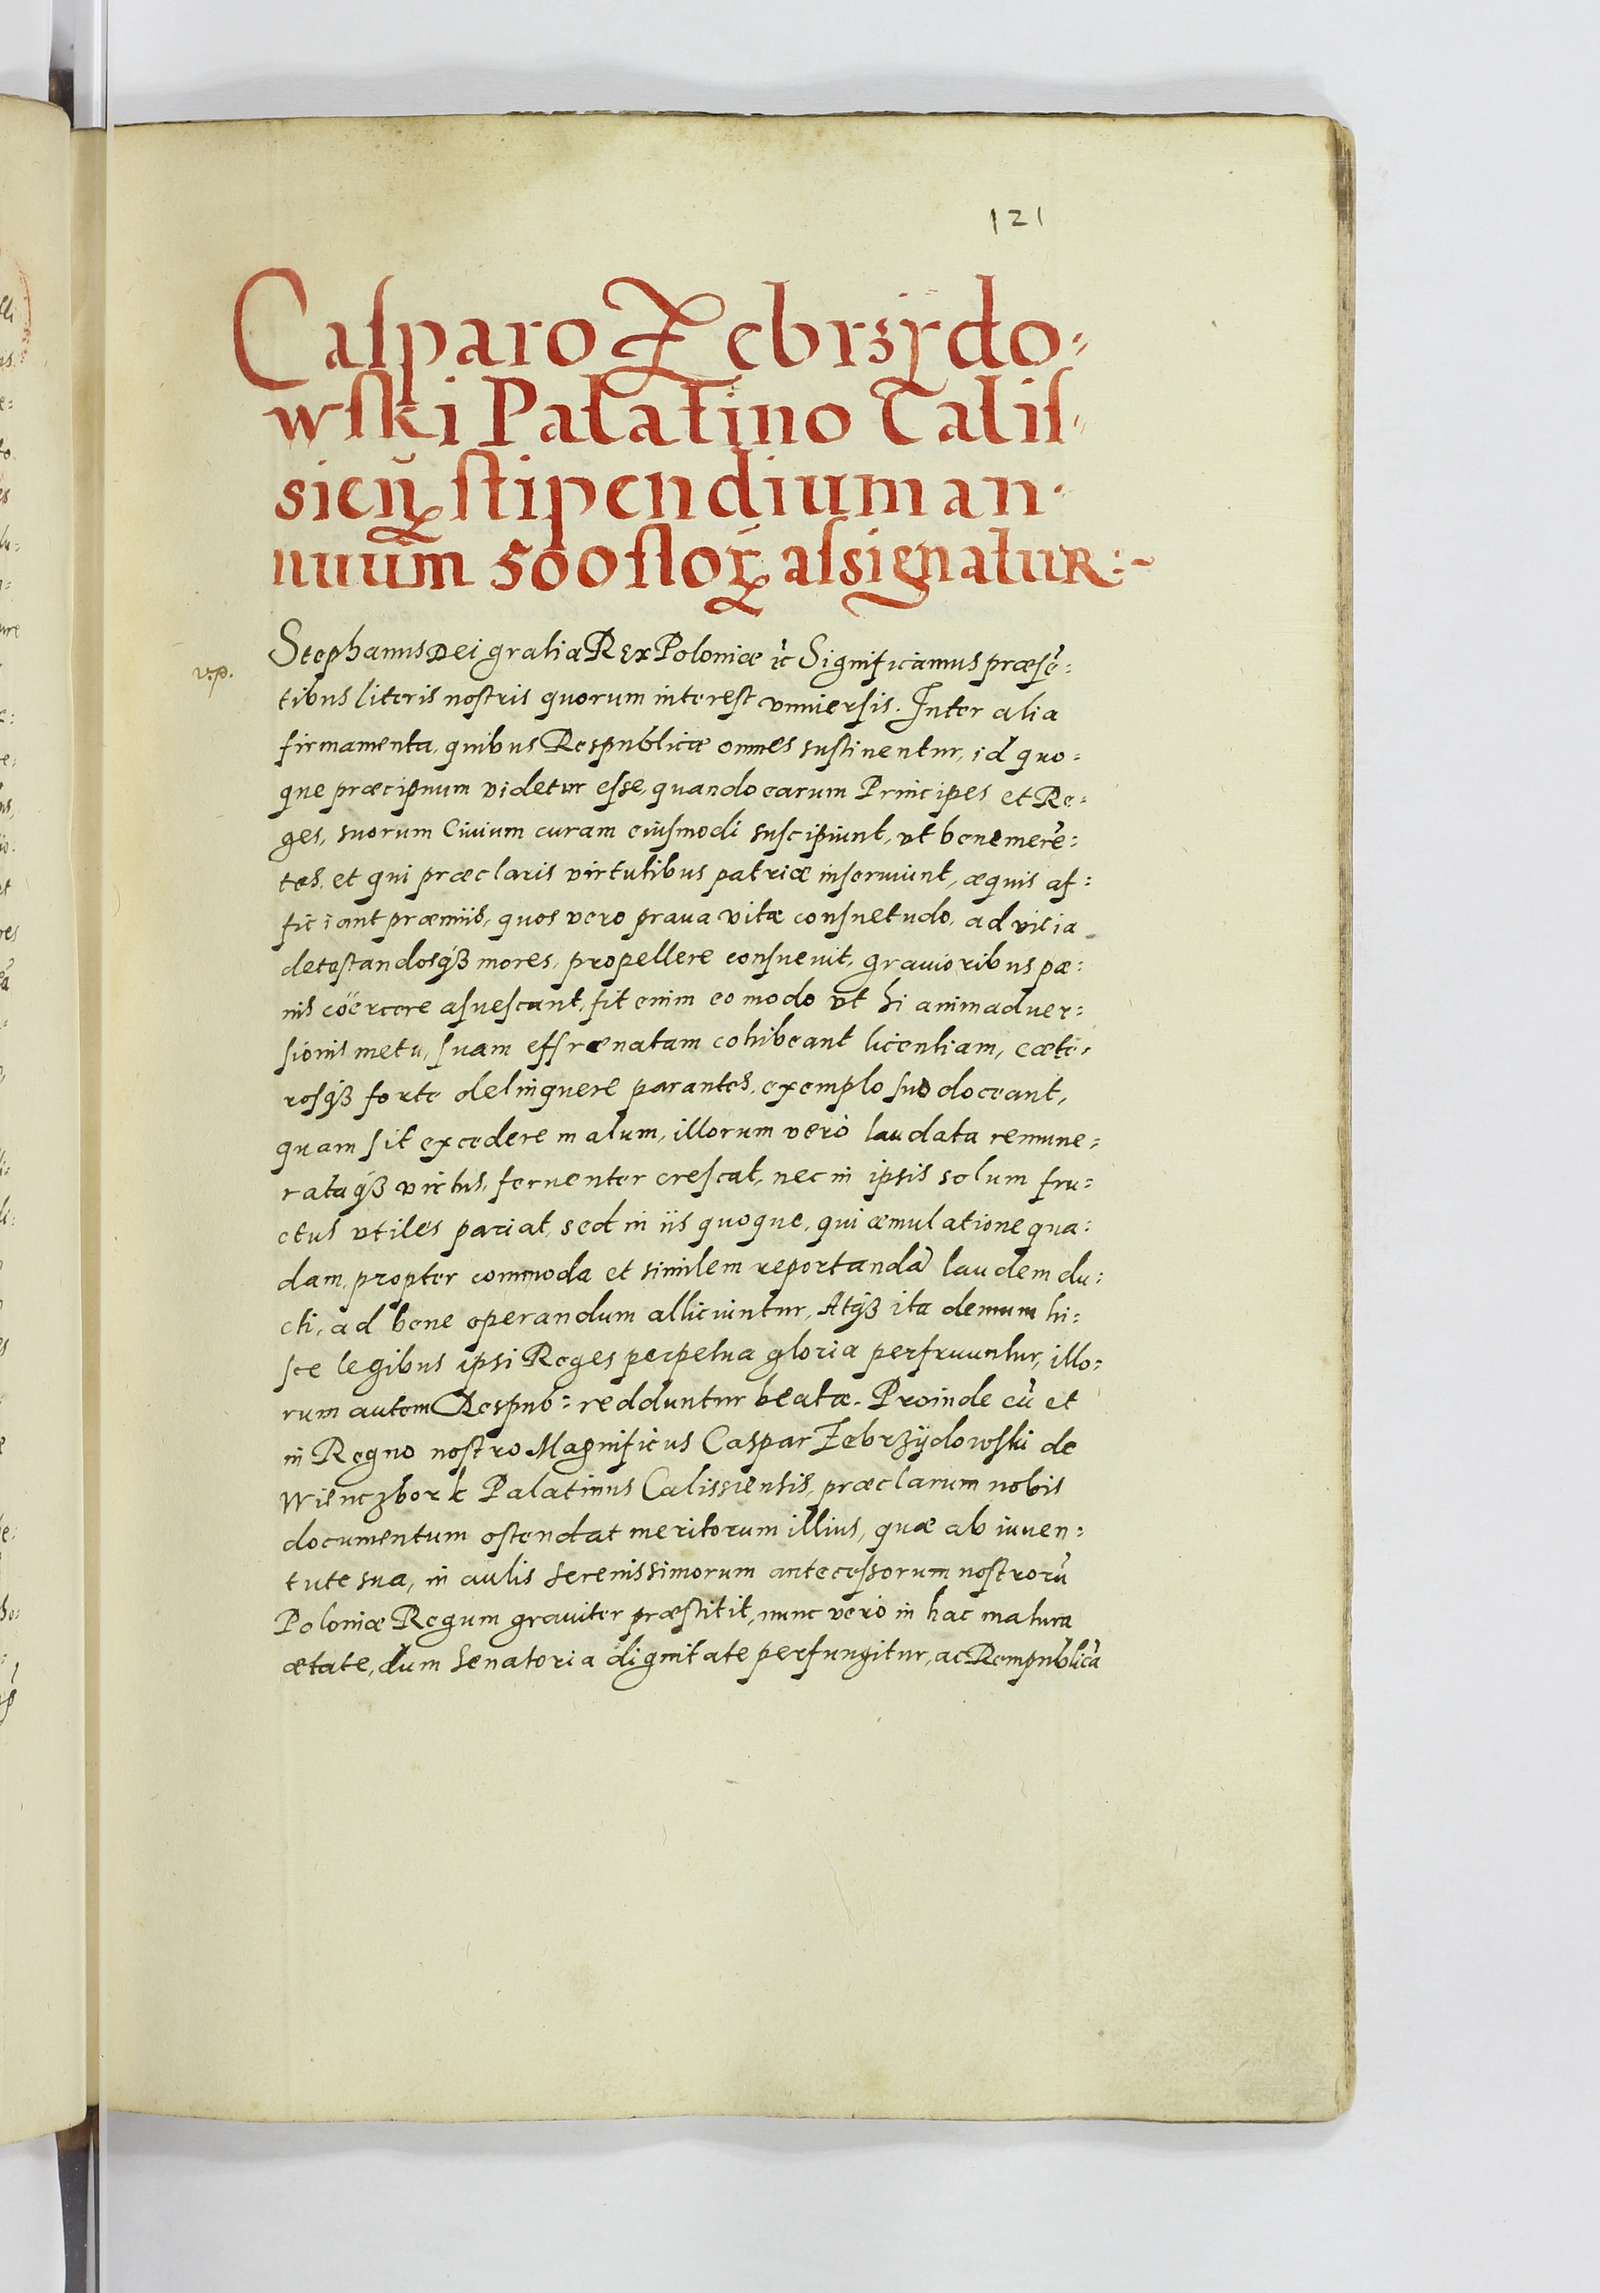 121
Casparo Zebrzydo-
wski Palatino Calis-
sieñ stipendium an-
nuum 500 flor: assignatur:~
v.p.
Stephanus Dei gratia Rex Poloniæ ec̃ Significamus præsẽ:
tibus literis nostris quorum interest vniuersis. Inter alia
firmamenta, quibus Respublicæ omnes sustinentur, id quo:
que præcipuum videtur esse, quando earum Principes et Re:
ges, suorum Ciuium curam eiusmodi suscipiunt, vt benemerẽ:
tes, et qui præclaris virtutibus patriæ inseruiunt, æquis af:
ficiant præmiis, quos vero praua vitæ consuetudo, ad vitia
detestandosq́ʒ mores, propellere consueuit, grauioribus pæ:
nis cöercere asuescant, fit enim eo modo vt hi animaduer:
sionis metu, suam effrænatam cohibeant licentiam, cæte:
rosq́ʒ forte delinquere parantes, exemplo suo doceant,
quam sit excedere malum, illorum verò laudata remune:
rataq́ʒ virtus, feruenter crescat, nec in ipsis solum fru:
ctus vtiles pariat, sed in iis quoque, qui æmulatione qua:
dam, propter commoda et similem reportandã laudem du:
cti, ad bene operandum alliciuntur, Atq́ʒ ita demum hi:
sce legibus ipsi Reges perpetua gloria perfruuntur, illo:
rum autem Respub: redduntur beatæ. Proinde cũ et
in Regno nostro Magnificus Caspar Zebrzÿdowski de
Wiençzbork Palatinus Calissiensis, præclarum nobis
documentum ostendat meritorum illius, quæ ab iuuen:
tute sua, in aulis serenissimorum antecessorum nostrorũ
Poloniæ Regum grauiter præstitit, nunc verò in hac matura
ætate, dum senatoria dignitate perfungitur, ac Rempublicã